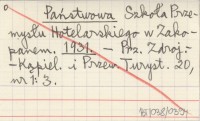 Państwowa Szkoła Prze-
mysłu Hotelarskiego w Zako-
panem. 1931. – Prz. Zdroj.-
-Kąpiel. i Przew. Turyst. 20,
nr 1: 3.